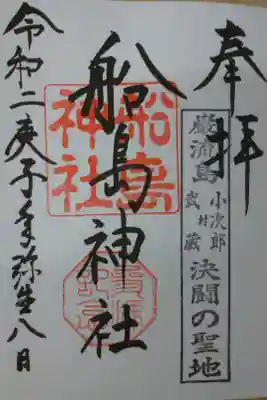 奉拝
巌流島
小次郎
武蔵
決闘の聖地
船島神社
船島
神社
令和二庚子年弥生八日